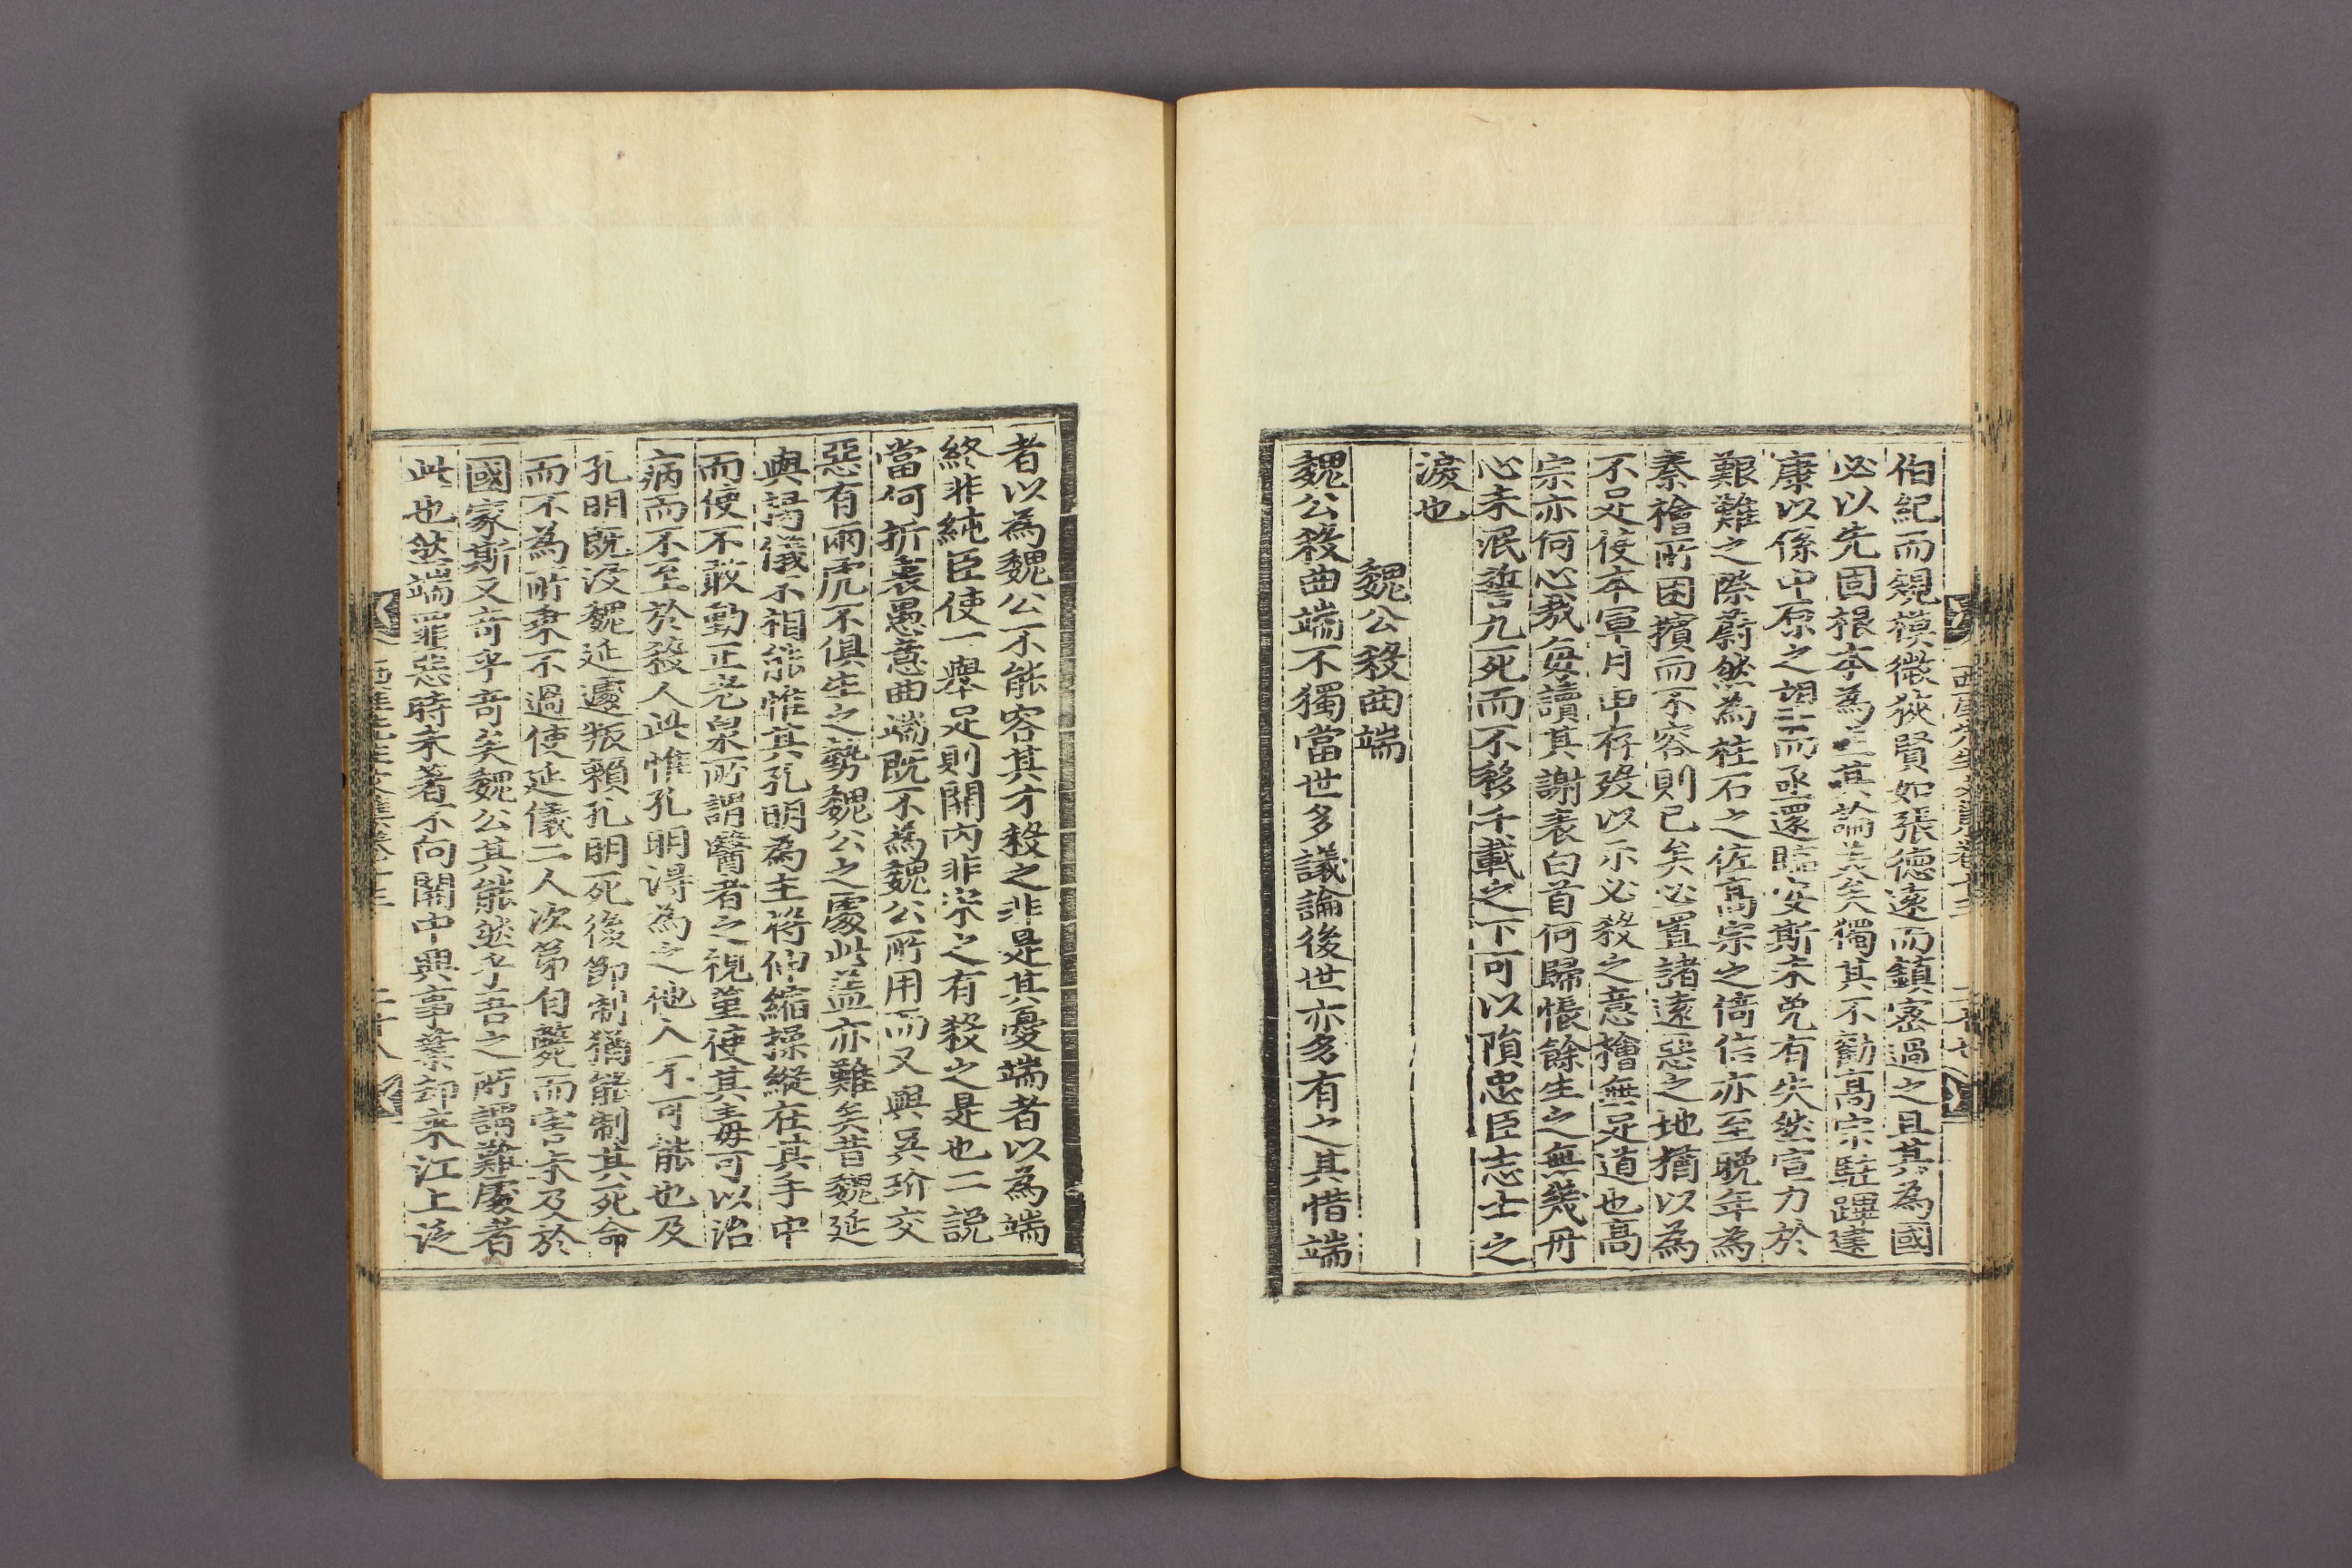 伯紀而規模微狹賢如張德遠而鎮密過之且其爲國
必以先固根本爲主其論美矣獨其不勸高宗駐蹕建
康以係中原之望而亟還臨安斯未免有失然宣力於
艱難之際蔚然爲柱石之佐高宗之倚信亦至晚年爲
秦檜所困擯而不容則已矣必置諸遠惡之地猶以爲
不足使本軍月申存歿以示必殺之意檜無足道也高
宗亦何心哉每讀其謝表白首何歸悵餘生之無幾丹
心未泯誓九死而不移千載之下可以隕忠臣志士之
淚也
魏公殺曲端
魏公殺曲端不獨當世多議論後世亦多有之其惜端
者以爲魏公不能容其才殺之非是其憂端者以爲端
終非純臣使一舉足則關內非宋之有殺之是也二說
當何折衷愚意曲端旣不爲魏公所用而又與吳玠交
惡有兩虎不俱生之勢魏公之處此盖亦難矣昔魏延
與楊儀不相能惟其孔明爲主將伸縮操縱在其手中
而使不敢動正老泉所謂醫者之視菫使其毒可以治
病而不至於殺人此惟孔明得爲之他人不可能也及
孔明旣沒魏延遽叛賴孔明死後節制猶能制其死命
而不爲所乘不過使延儀二人次第自斃而害未及於
國家斯又奇乎奇矣魏公其能然乎吾之所謂難處者
此也然端罪惡時未著不向關中興事業却來江上泛
西厓先生文集卷十五